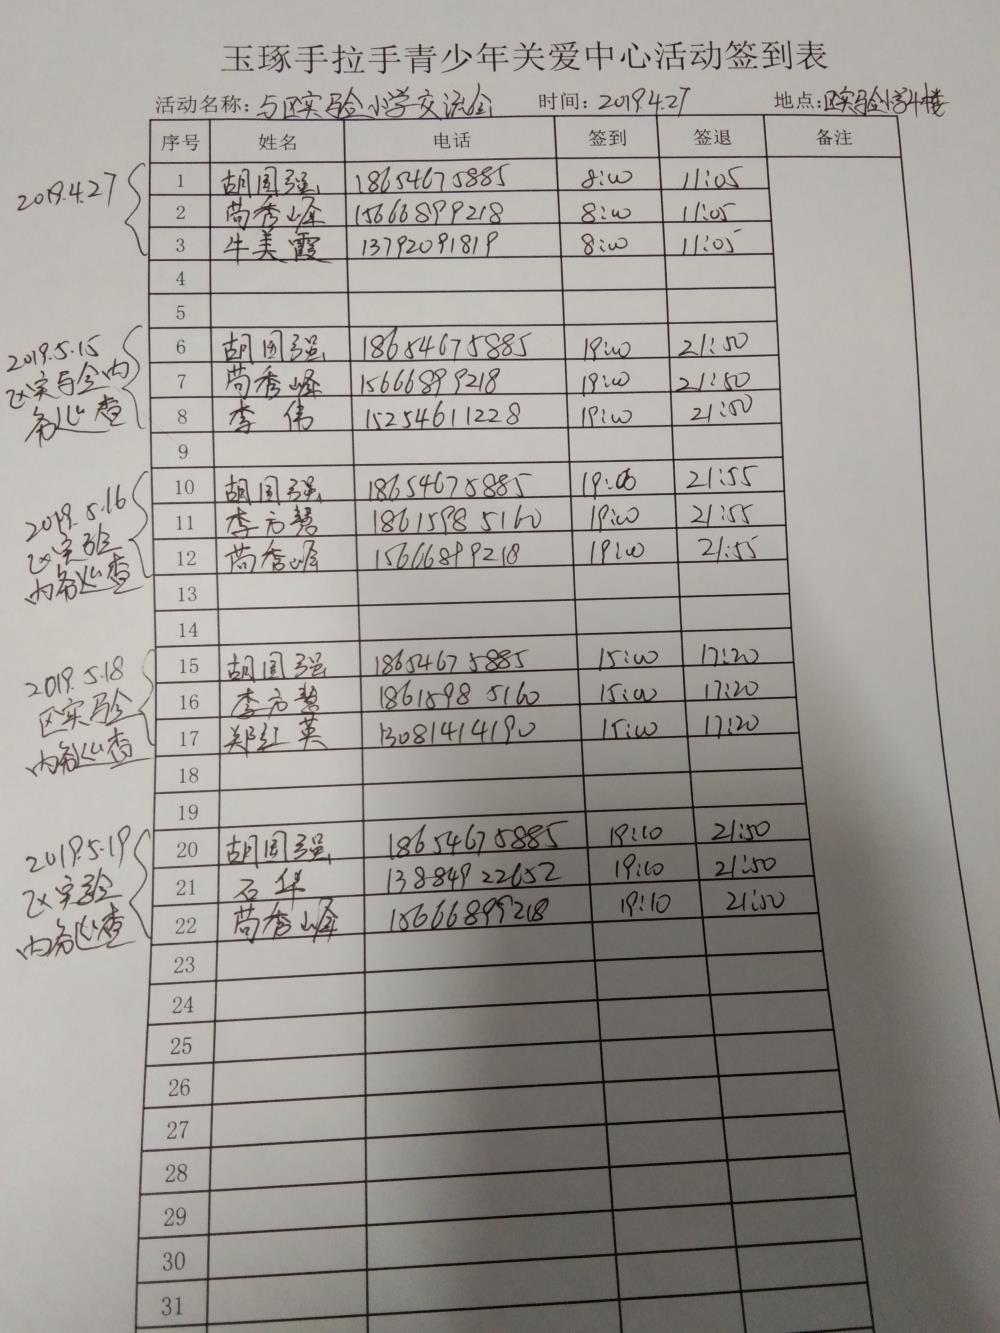 玉琢手拉手青少年关爱中心活动签到表
活动名称:与区实验小学交流会 时间:2019.4.27 地点:区实验小学4楼
序号 姓名 电话 签到 签退 备注
2019.4.27
1 胡国强 18654675885 8:00 11:05
2 苘秀峰 15666899218 8:00 11:05
3 牛美霞 13792091819 8:00 11:05
4
5
2019.5.15
区实验内
务巡查
6 胡国强 18654675885 19:00 21:50
7 苘秀峰 15666899218 19:00 21:50
8 李伟 15254611228 19:00 21:50
9
2019.5.16
区实验
内务巡查
10 胡国强 18654675885 19:00 21:55
11 李方慧 18615985160 19:00 21:55
12 苘秀峰 15666899218 19:00 21:55
13
14
2019.5.18
区实验
内务巡查
15 胡国强 18654675885 15:00 17:20
16 李方慧 18615985160 15:00 17:20
17 郑红英 13081414190 15:00 17:20
18
19
2019.5.19
区实验
内务巡查
20 胡国强 18654675885 19:10 21:50
21 石华 13884922652 19:10 21:50
22 苘秀峰 15666899218 19:10 21:50
23
24
25
26
27
28
29
30
31